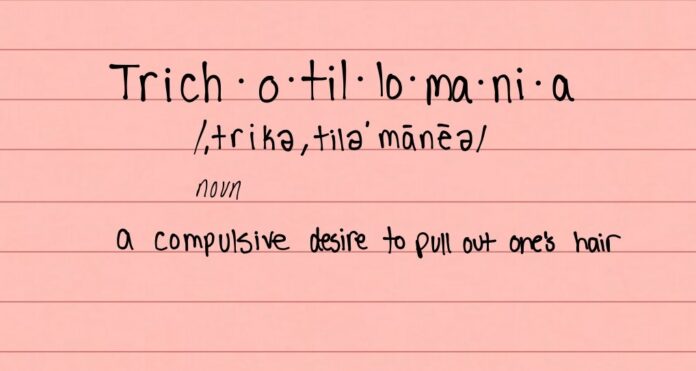 Trich·o·til·lo·ma·ni·a
/ˌtrikəˌtiləˈmānēə/
noun
a compulsive desire to pull out one's hair